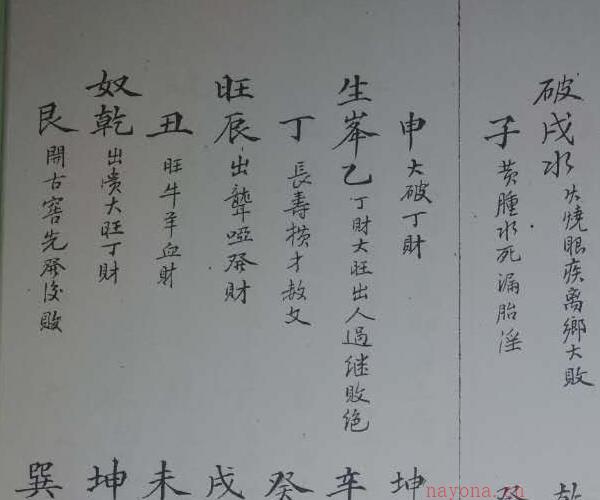 破戌水 火燒眼疾离鄉大敗
子 黄腫水死漏胎淫
申 大破丁財
生峯乙 丁財大旺出人過继敗絶
丁 長壽横才赦文
旺辰 出聾啞發財
丑 旺牛羊血財
奴乾 出贵大旺丁財
艮 開古窖先發後敗
乾
癸
坤
辛
癸
戌
未
坤
巽
nayona.cn